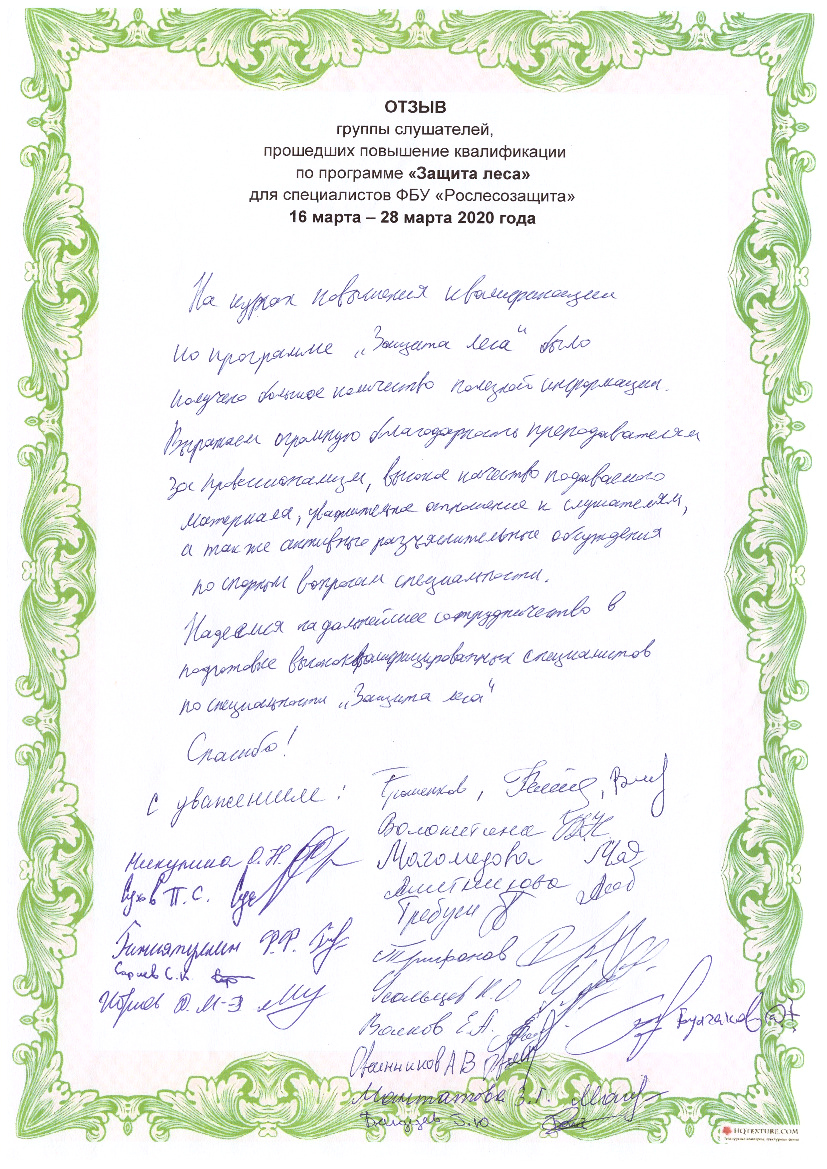 ОТЗЫВ
группы слушателей,
прошедших повышение квалификации
по программе «Защита леса»
для специалистов ФБУ «Рослесозащита»
16 марта – 28 марта 2020 года
На курсах повышения квалификации
по программе „Защита леса" было
получено большое количество полезной информации.
Выражаем огромную благодарность преподавателям
за профессионализм, высокое качество подаваемого
материала, уважительное отношение к слушателям,
а также активные разъяснительные обсуждения
по спорным вопросам специальности.
Надеемся на дальнейшее сотрудничество в
подготовке высококвалифицированных специалистов
по специальности „Защита леса"
Спасибо!
С уважением:
Никулина О.Н.
Сухов П.С.
Гиниятуллин Р.Р.
Волокитина
Магомедова
Трифонов
Усольцев
Волков Е.А.
Овчинников А В
Булгаков
HQTEXTURE.COM